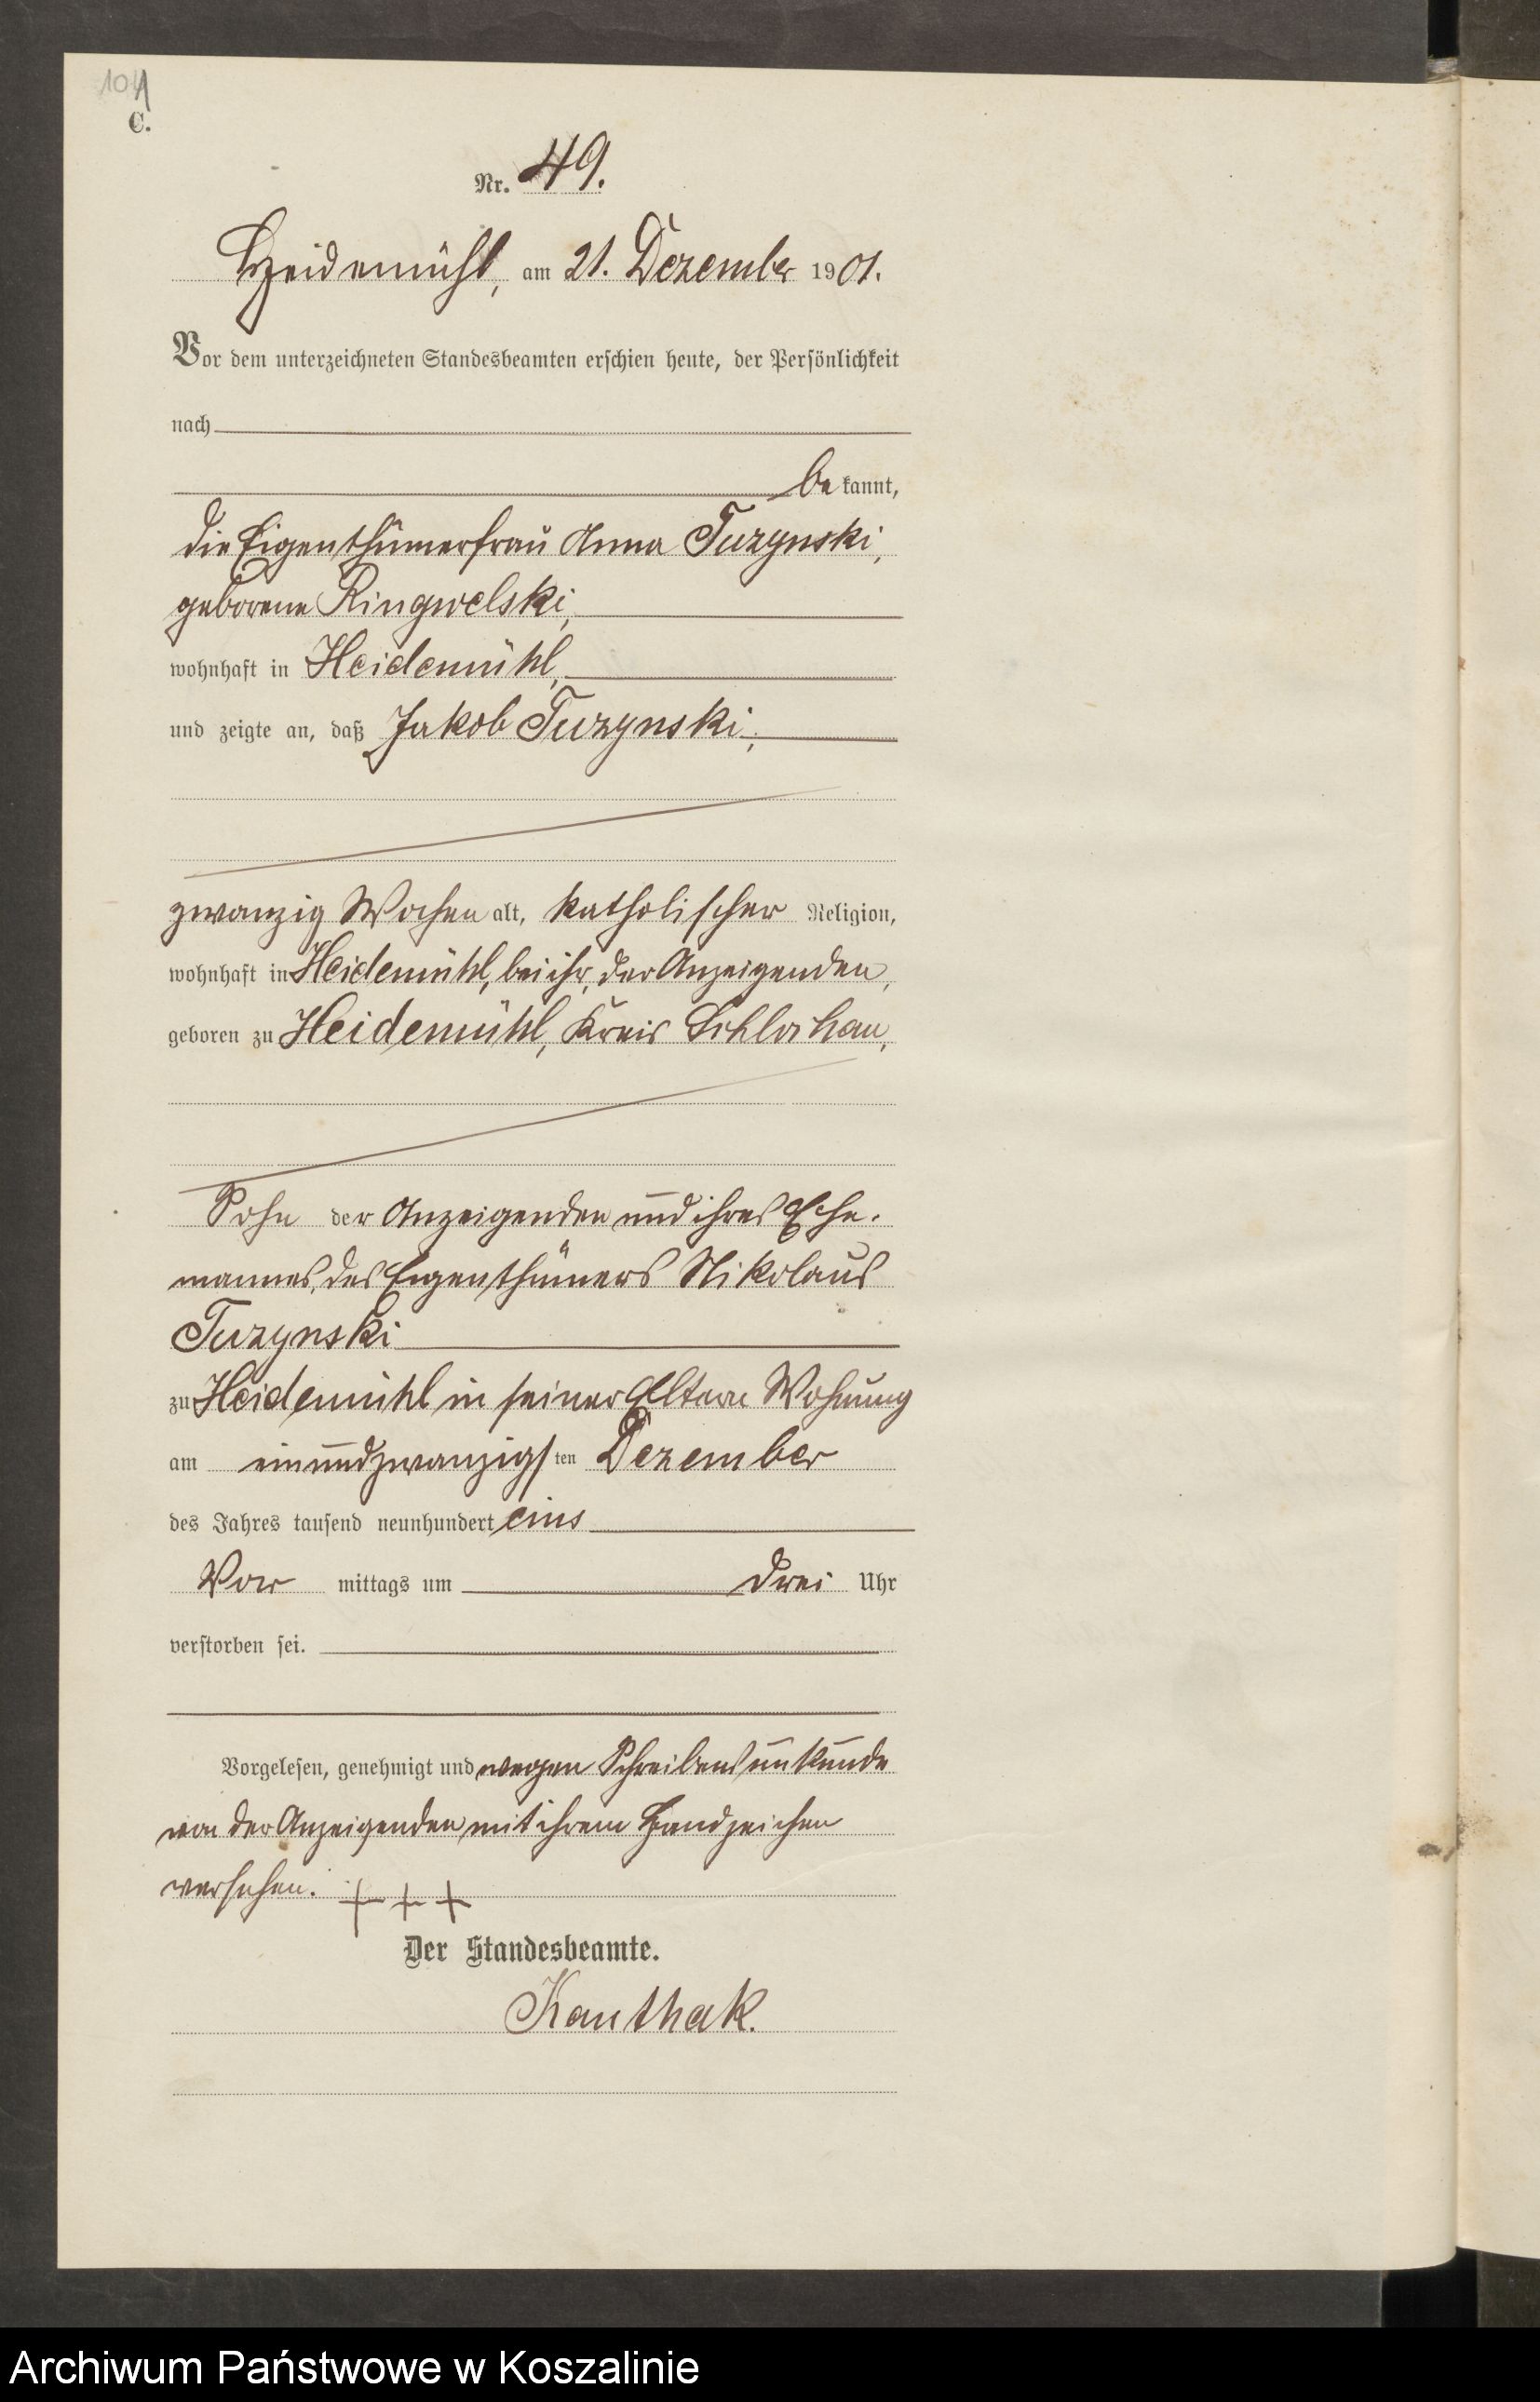 104
C.
Nr. 49.
Heidemühl, am 21. Dezember 1901.
Vor dem unterzeichneten Standesbeamten erschien heute, der Persönlichkeit
nach
be kannt,
die Eigenthümerfrau Anna Turzynski,
geborene Ringwelski,
wohnhaft in Heidemühl,
und zeigte an, daß Jakob Turzynski,
zwanzig Wochen alt, katholischer Religion,
wohnhaft in Heidemühl, bei ihr, der Anzeigenden,
geboren zu Heidemühl, Kreis Schlochau,
Sohn der Anzeigenden und ihres Ehe-
mannes, des Eigenthümers Nikolaus
Turzynski
zu Heidemühl in seiner Eltern Wohnung
am einundzwanzigsten Dezember
des Jahres tausend neunhundert eins
Vor mittags um drei Uhr
verstorben sei.
Vorgelesen, genehmigt und wegen Schreibensunkunde
von der Anzeigenden mit ihrem Handzeichen
versehen. + + +
Der Standesbeamte.
Kauthak.
Archiwum Państwowe w Koszalinie